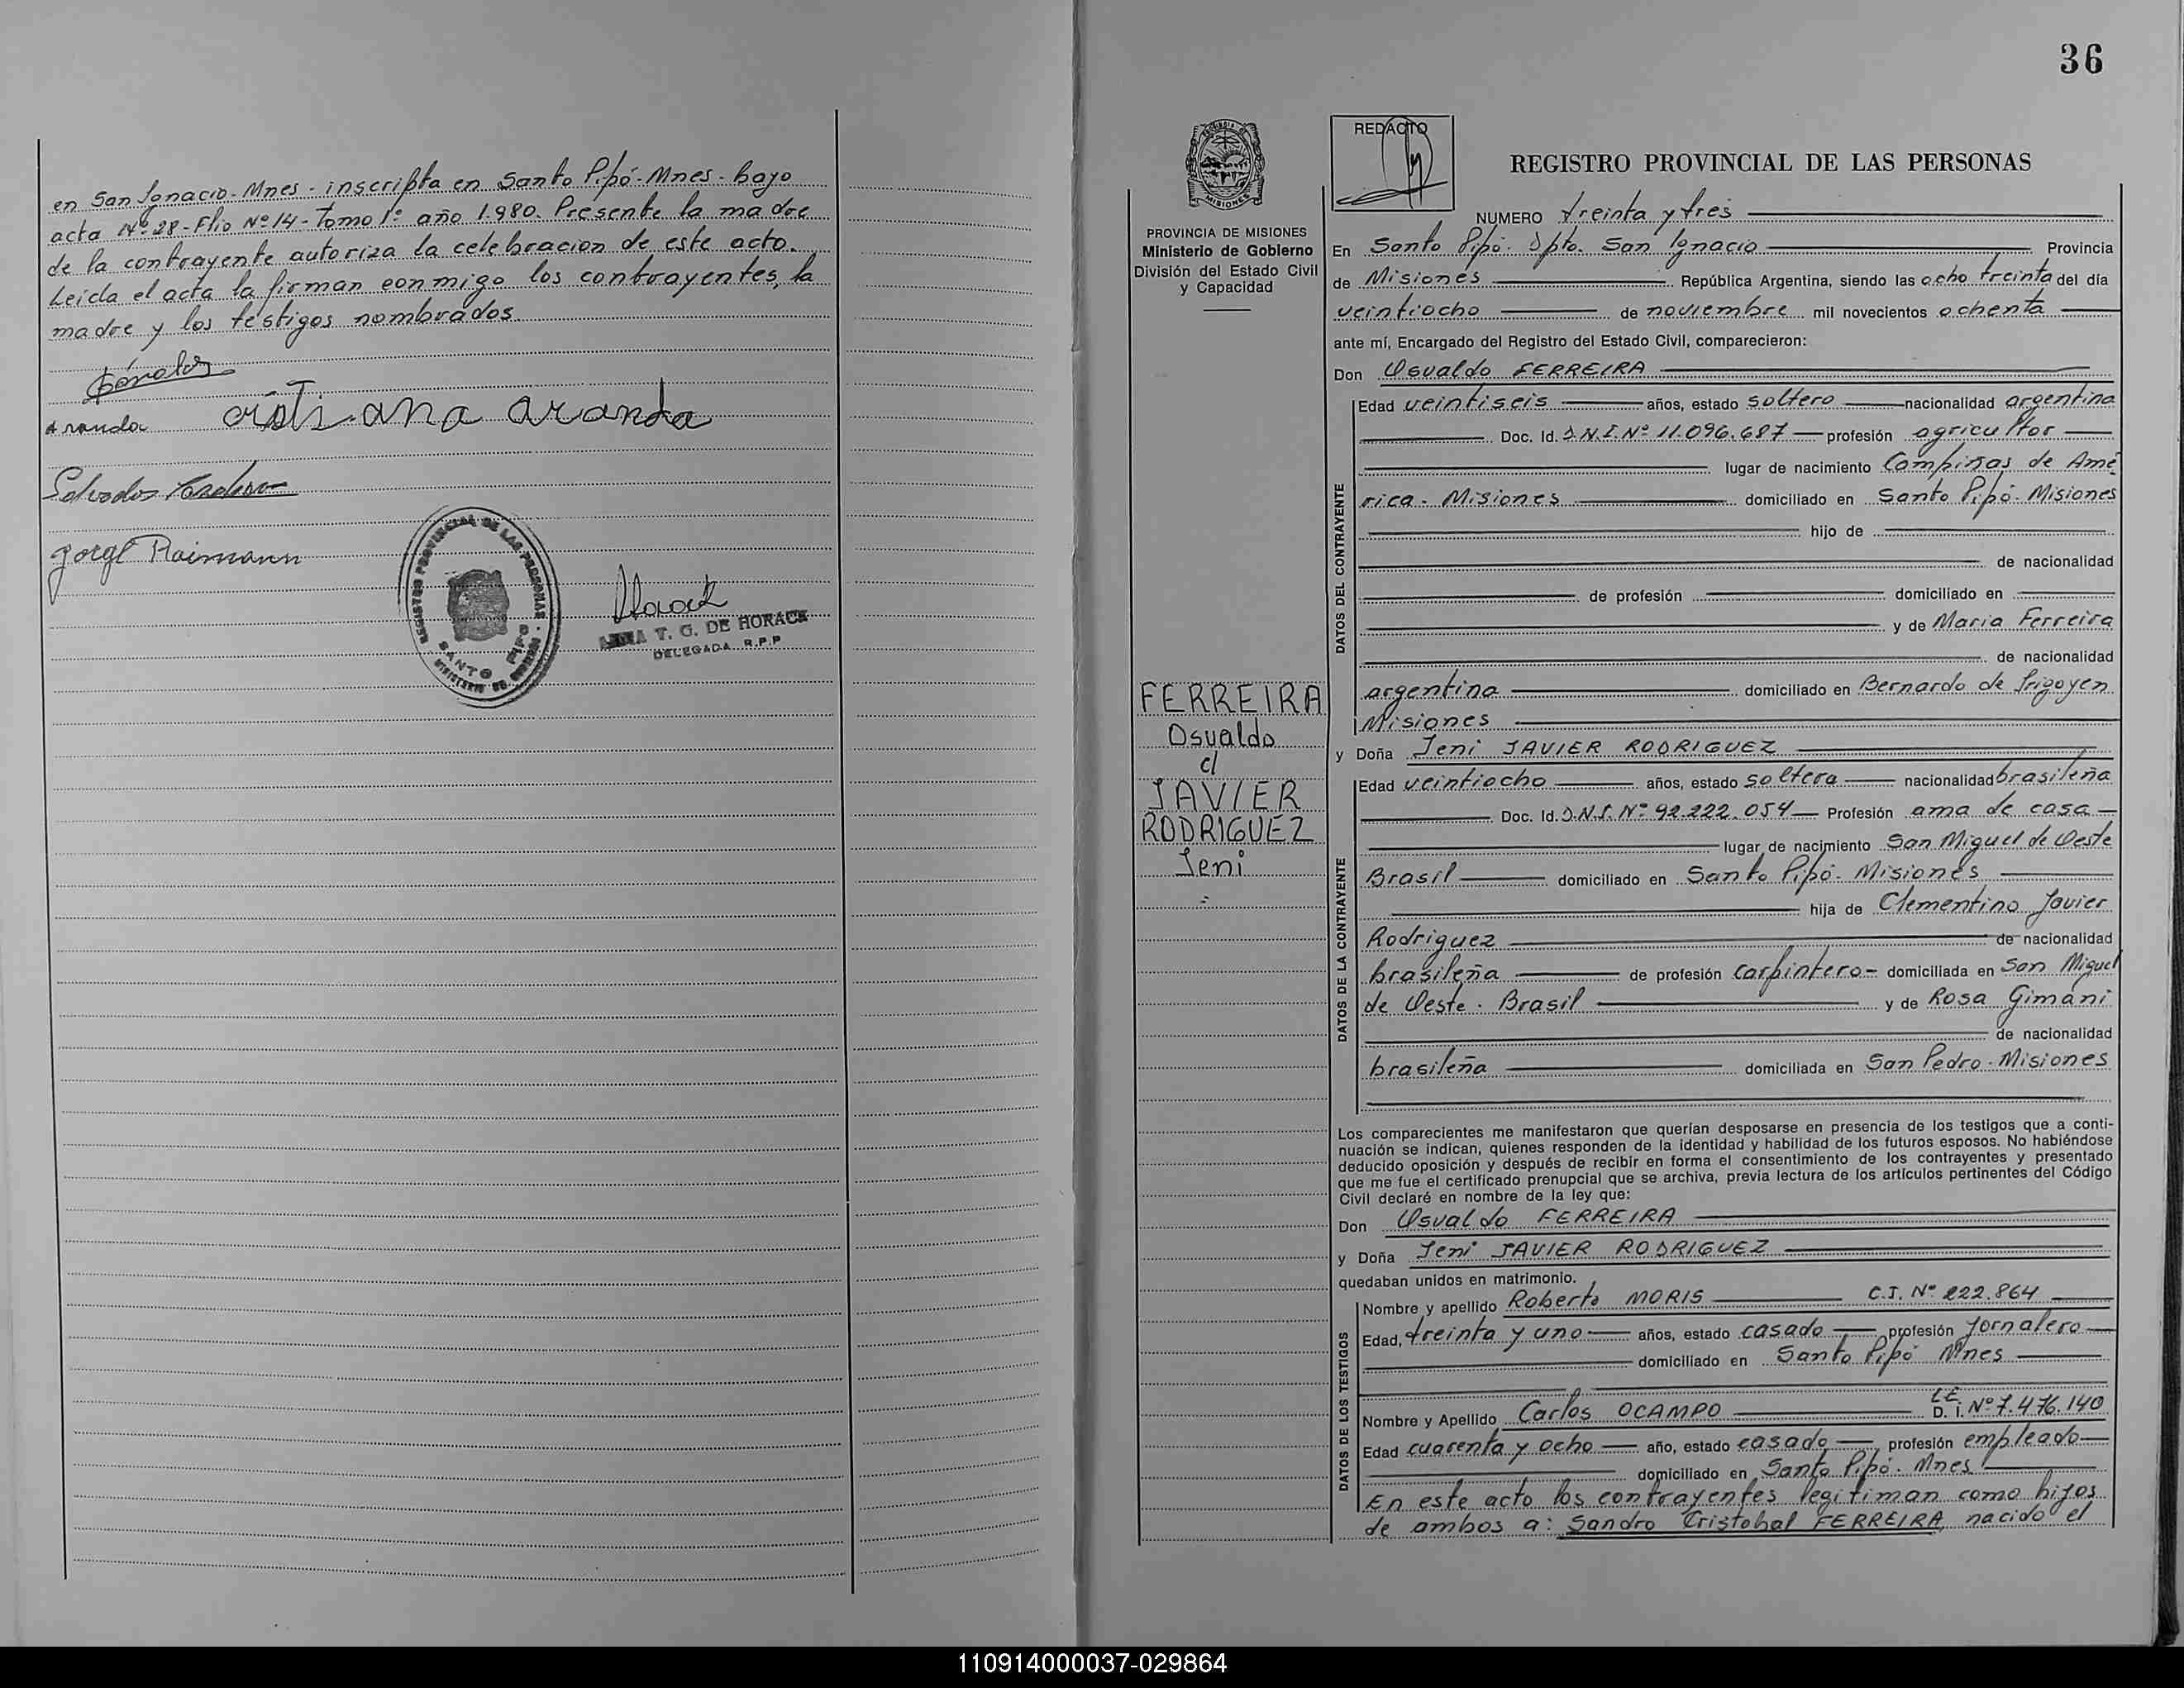 en San Ignacio-Mnes- inscripta en Santo Pipó-Mnes- bajo
acta Nº 28-Flio Nº 14- Tomo 1º año 1.980. Presente la madre
de la contrayente autoriza la celebracion de este acto.
Leida el acta la firman conmigo los contrayentes, la
madre y los testigos nombrados.
Aranda cristiana aranda
Salvador
Jorge Raimann
REGISTRO PROVINCIAL DE LAS PERSONAS
SANTO PIPO
T. G. DE HORACK
DELEGADA R.P.P
36
PROVINCIA DE MISIONES
Ministerio de Gobierno
División del Estado Civil
y Capacidad
FERREIRA
Osvaldo
c/
JAVIER
RODRIGUEZ
Jeni
REDACTO
REGISTRO PROVINCIAL DE LAS PERSONAS
NUMERO treinta y tres
En Santo Pipó. Dpto. San Ignacio Provincia
de Misiones República Argentina, siendo las ocho treinta del día
veintiocho de noviembre mil novecientos ochenta
ante mí, Encargado del Registro del Estado Civil, comparecieron:
Don Osvaldo FERREIRA
DATOS DEL CONTRAYENTE
Edad veintiseis años, estado soltero nacionalidad argentina
Doc. Id. D.N.I. Nº 11.096.687 profesión agricultor
lugar de nacimiento Campiñas de Amé
rica - Misiones domiciliado en Santo Pipó- Misiones
hijo de
de nacionalidad
de profesión domiciliado en
y de Maria Ferreira
de nacionalidad
argentina domiciliado en Bernardo de Irigoyen
Misiones
y Doña Jeni JAVIER RODRIGUEZ
DATOS DE LA CONTRAYENTE
Edad veintiocho años, estado soltera nacionalidad brasileña
Doc. Id. D.N.I. Nº 92.222.054 Profesión ama de casa
lugar de nacimiento San Miguel de Oeste
Brasil domiciliado en Santo Pipó- Misiones
hija de Clementino Javier
Rodriguez de nacionalidad
brasileña de profesión carpintero- domiciliada en San Miguel
de Oeste - Brasil y de Rosa Gimani
de nacionalidad
brasileña domiciliada en San Pedro-Misiones
Los comparecientes me manifestaron que querían desposarse en presencia de los testigos que a conti-
nuación se indican, quienes responden de la identidad y habilidad de los futuros esposos. No habiéndose
deducido oposición y después de recibir en forma el consentimiento de los contrayentes y presentado
que me fue el certificado prenupcial que se archiva, previa lectura de los artículos pertinentes del Código
Civil declaré en nombre de la ley que:
Don Osvaldo FERREIRA
y Doña Jeni JAVIER RODRIGUEZ
quedaban unidos en matrimonio.
DATOS DE LOS TESTIGOS
Nombre y apellido Roberto MORIS C.I. Nº 222.864
Edad, treinta y uno años, estado casado profesión jornalero
domiciliado en Santo Pipó Mnes
L.E.
Nombre y Apellido Carlos OCAMPO D. I. Nº 7.476.140
Edad cuarenta y ocho año, estado casado profesión empleado
domiciliado en Santo Pipó. Mnes
En este acto los contrayentes legitiman como hijos
de ambos a: Sandro Cristobal FERREIRA nacido el
110914000037-029864